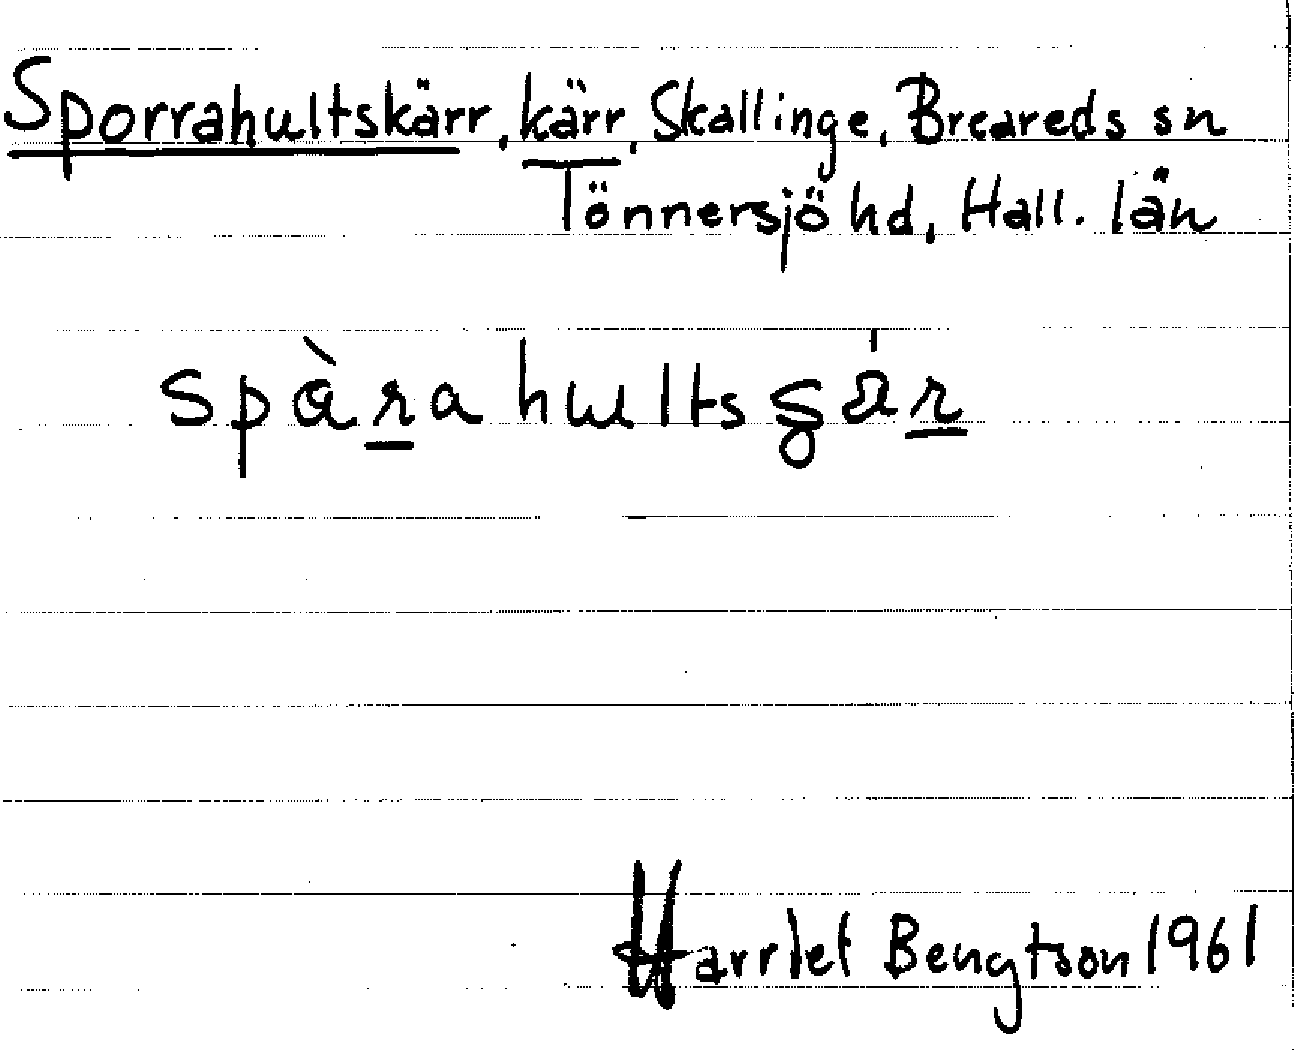 Sporrahultskärr, kärr, Skallinge, Breareds sn
Tönnersjö hd, Hall. län
spàrahults
Harriet Bengtson 1961